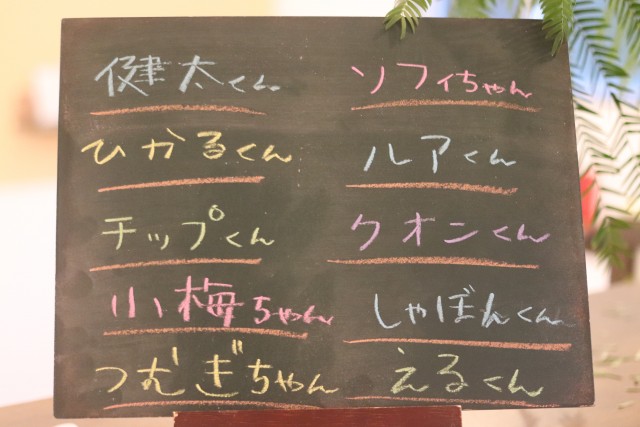 健太くん
ひかるくん
チップくん
小梅ちゃん
つむぎちゃん
ソフィちゃん
ルアくん
クオンくん
しゃぼんくん
えるくん